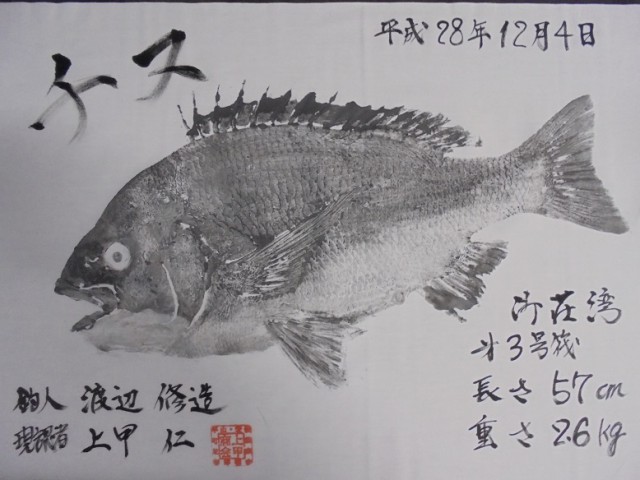 チヌ
平成28年12月4日
御荘湾
3号筏
長さ 57cm
重さ 2.6kg
釣人 渡辺 修造
現認者 上甲 仁